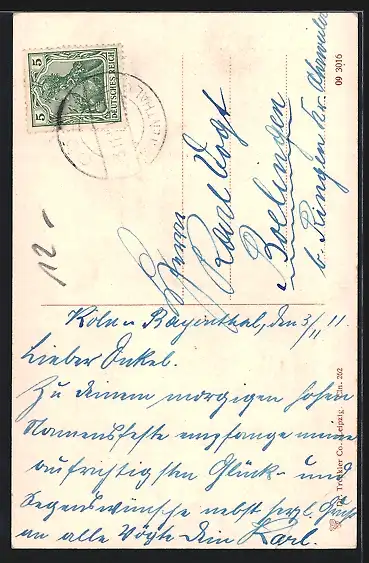 5 5
DEUTSCHES REICH
Herrn
Karl Vogt
Boelingen
b. Ringen Kr. Ahrweiler
09 3016
12-
Köln-Bayenthal, den 3/11 11.
Lieber Onkel.
Zu deinem morgigen hohen
Namensfeste empfange meine
aufrichtigsten Glück- und
Segenswünsche nebst herzl. Gruß
an alle Vögte Dein Karl.
Dr. Trenkler Co., Leipzig. Cln. 262